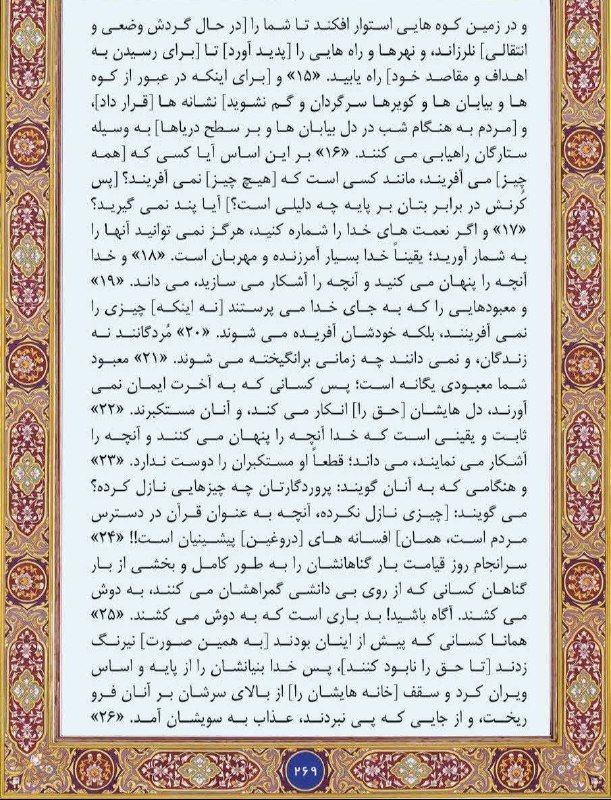 و در زمین کوه هایی استوار افکند تا شما را [در حال گردش وضعی و
انتقالی] نلرزاند، و نهرها و راه هایی را [پدید آورد] تا [برای رسیدن به
اهداف و مقاصد خود] راه یابید. «۱۵» و [برای اینکه در عبور از کوه
ها و بیابان ها و کویرها سرگردان و گم نشوید] نشانه ها [قرار داد]،
و [مردم به هنگام شب در دل بیابان ها و بر سطح دریاها] به وسیله
ستارگان راهیابی می کنند. «۱۶» بر این اساس آیا کسی که [همه
چیز] می آفریند، مانند کسی است که [هیچ چیز] نمی آفریند؟ [پس
کُرنش در برابر بتان بر پایه چه دلیلی است؟] آیا پند نمی گیرید؟
«۱۷» و اگر نعمت های خدا را شماره کنید، هرگز نمی توانید آنها را
به شمار آورید؛ یقیناً خدا بسیار آمرزنده و مهربان است. «۱۸» و خدا
آنچه را پنهان می کنید و آنچه را آشکار می سازید، می داند. «۱۹»
و معبودهایی را که به جای خدا می پرستند [نه اینکه] چیزی را
نمی آفرینند، بلکه خودشان آفریده می شوند. «۲۰» مُردگانند نه
زندگان، و نمی دانند چه زمانی برانگیخته می شوند. «۲۱» معبود
شما معبودی یگانه است؛ پس کسانی که به آخرت ایمان نمی
آورند، دل هایشان [حق را] انکار می کند، و آنان مستکبرند. «۲۲»
ثابت و یقینی است که خدا آنچه را پنهان می کنند و آنچه را
آشکار می نمایند، می داند؛ قطعاً او مستکبران را دوست ندارد. «۲۳»
و هنگامی که به آنان گویند: پروردگارتان چه چیزهایی نازل کرده؟
می گویند: [چیزی نازل نکرده، آنچه به عنوان قرآن در دسترس
مردم است، همان] افسانه های [دروغین] پیشینیان است!! «۲۴»
سرانجام روز قیامت بار گناهانشان را به طور کامل و بخشی از بار
گناهان کسانی که از روی بی دانشی گمراهشان می کنند، به دوش
می کشند. آگاه باشید! بد باری است که به دوش می کشند. «۲۵»
همانا کسانی که پیش از اینان بودند [به همین صورت] نیرنگ
زدند [تا حق را نابود کنند]، پس خدا بنیانشان را از پایه و اساس
ویران کرد و سقف [خانه هایشان را] از بالای سرشان بر آنان فرو
ریخت، و از جایی که پی نبردند، عذاب به سویشان آمد. «۲۶»
۲۶۹